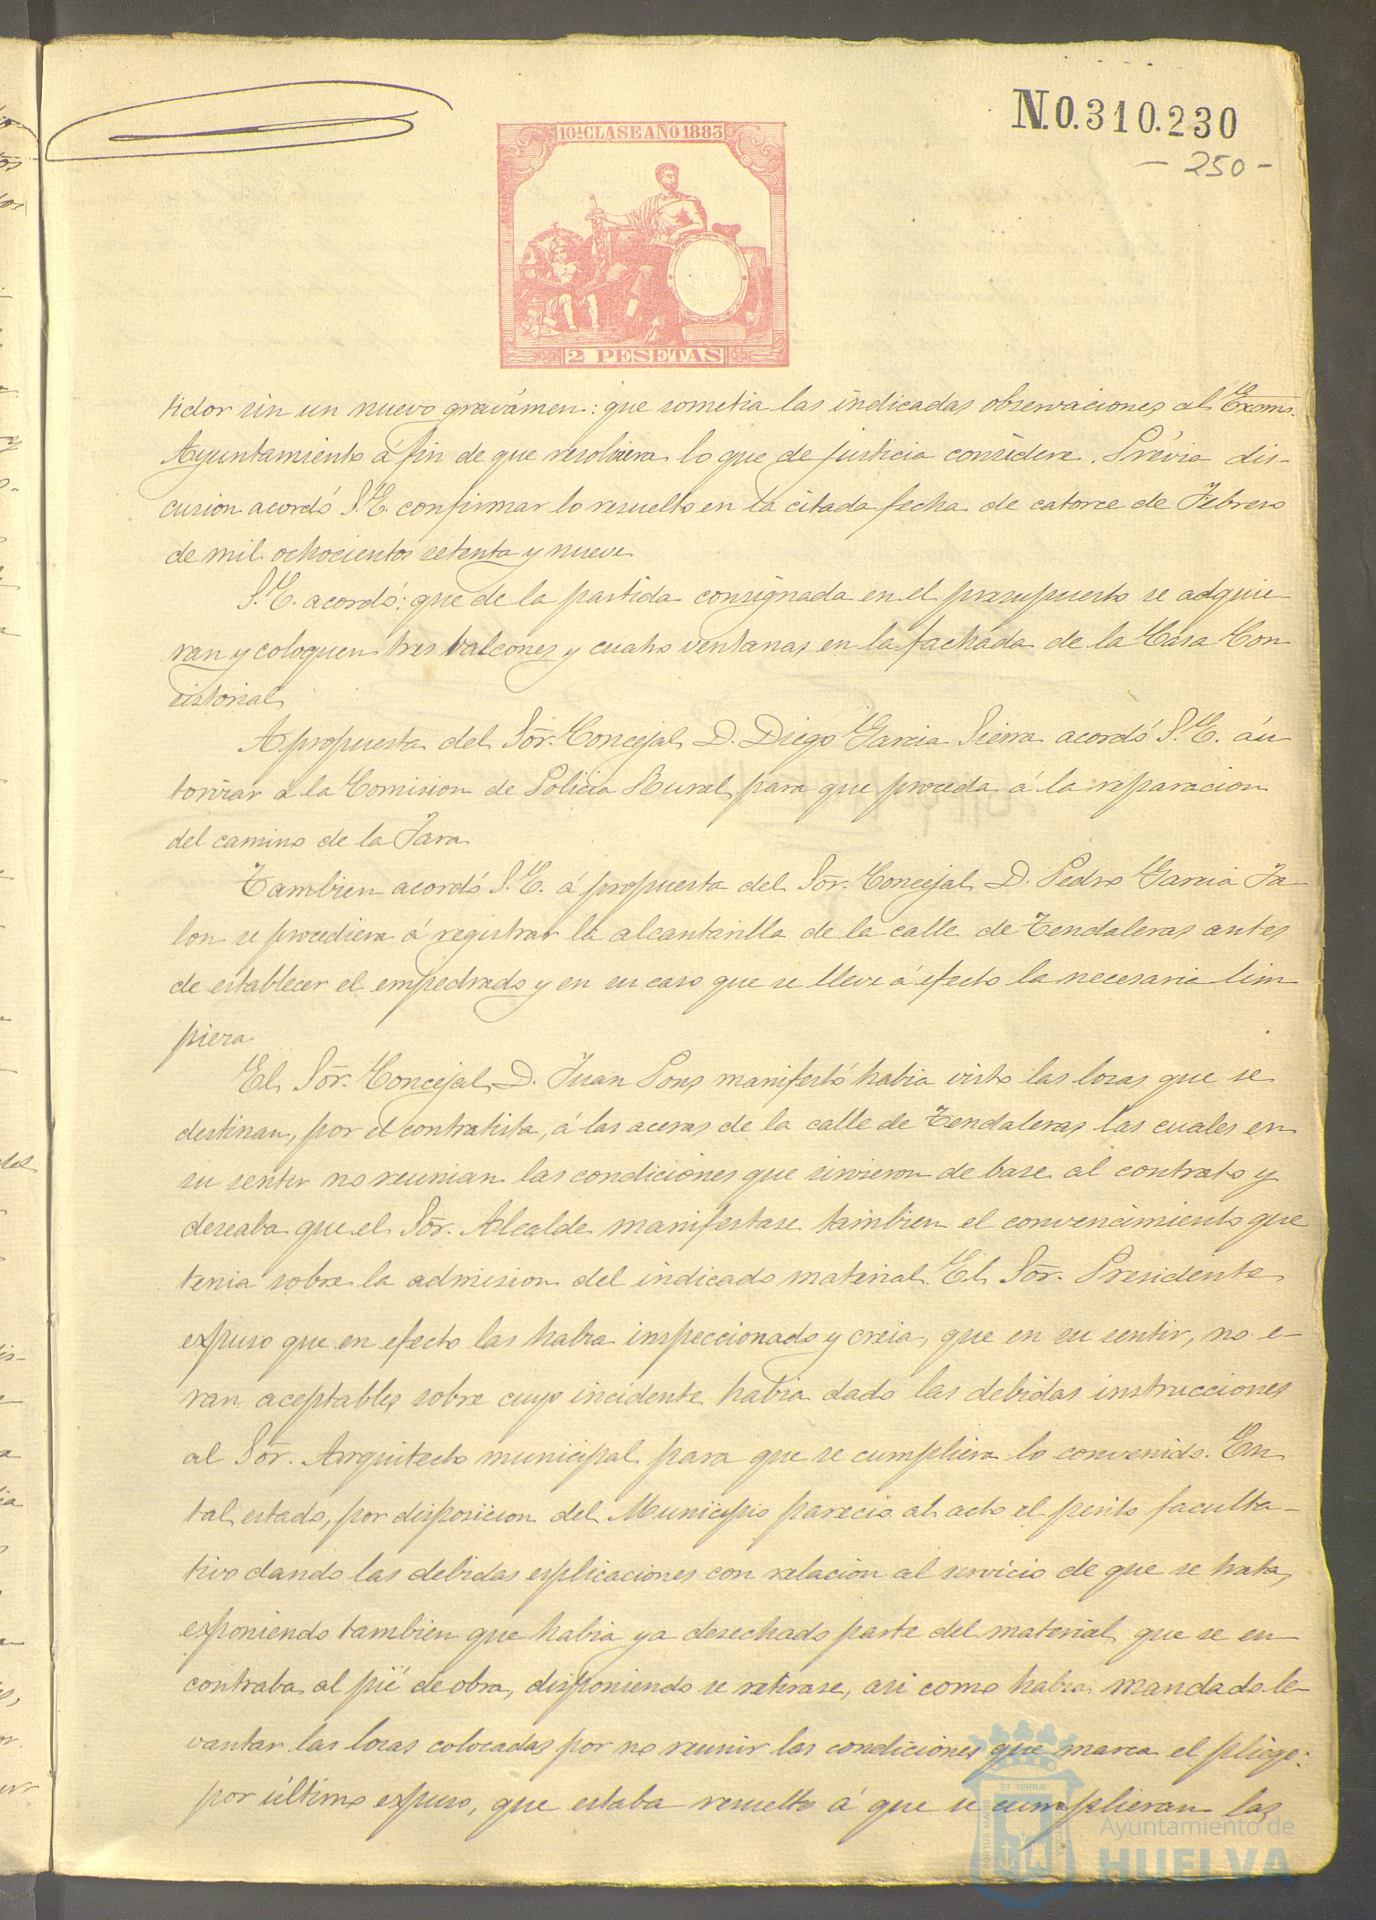 N.0.310.230
- 250 -
10ª CLASE AÑO 1883
2 PESETAS
tidor sin un nuevo gravámen: que sometia las indicadas observaciones al Excmo.
Ayuntamiento á fin de que resolviera lo que de justicia considere. Prévia dis-
cusion acordó S.E. confirmar lo resuelto en la citada fecha de catorce de Febrero
de mil ochocientos setenta y nueve
S.E. acordó: que de la partida consignada en el presupuesto se adquie
ran y coloquen tres balcones y cuatro ventanas en la fachada de la Casa Con
sistorial
A propuesta del Sõr. Concejal D. Diego Garcia Sierra acordó S.E. áu
torizar á la Comision de Policia Rural para que proceda á la reparacion
del camino de la Jara
Tambien acordó S.E. a propuesta del Sõr. Concejal D. Pedro Garcia Ja
lon se procediera á registrar la alcantarilla de la calle de Tendaleras antes
de establecer el empedrado y en su caso que se lleve á efecto la necesaria lim
pieza
El Sõr. Concejal D. Juan Pons manifestó habia visto las losas que se
destinan, por el contratista, á las aceras de la calle de Tendaleras las cuales en
su sentir no reunian las condiciones que sirvieron de base al contrato y
deseaba que el Sõr. Alcalde manifestase tambien el convencimiento que
tenia sobre la admision del indicado material. El Sõr. Presidente
expuso que en efecto las habia inspeccionado y creia, que en su sentir, no e-
ran aceptables sobre cuyo incidente habia dado las debidas instrucciones
al Sõr. Arquitecto municipal para que se cumpliera lo convenido. En
tal estado, por disposicion del Municipio parecio al acto el perito faculta-
tivo dando las debidas esplicaciones con relacion al servicio de que se trata,
esponiendo tambien que habia ya desechado parte del material que se en
contraba al pié de obra, disponiendo se retirase, asi como habia mandado le-
vantar las losas colocadas por no reunir las condiciones que marca el pliego:
por último expuso, que estaba resuelto á que se cumplieran las
ET TERRAE
Ayuntamiento de
HUELVA